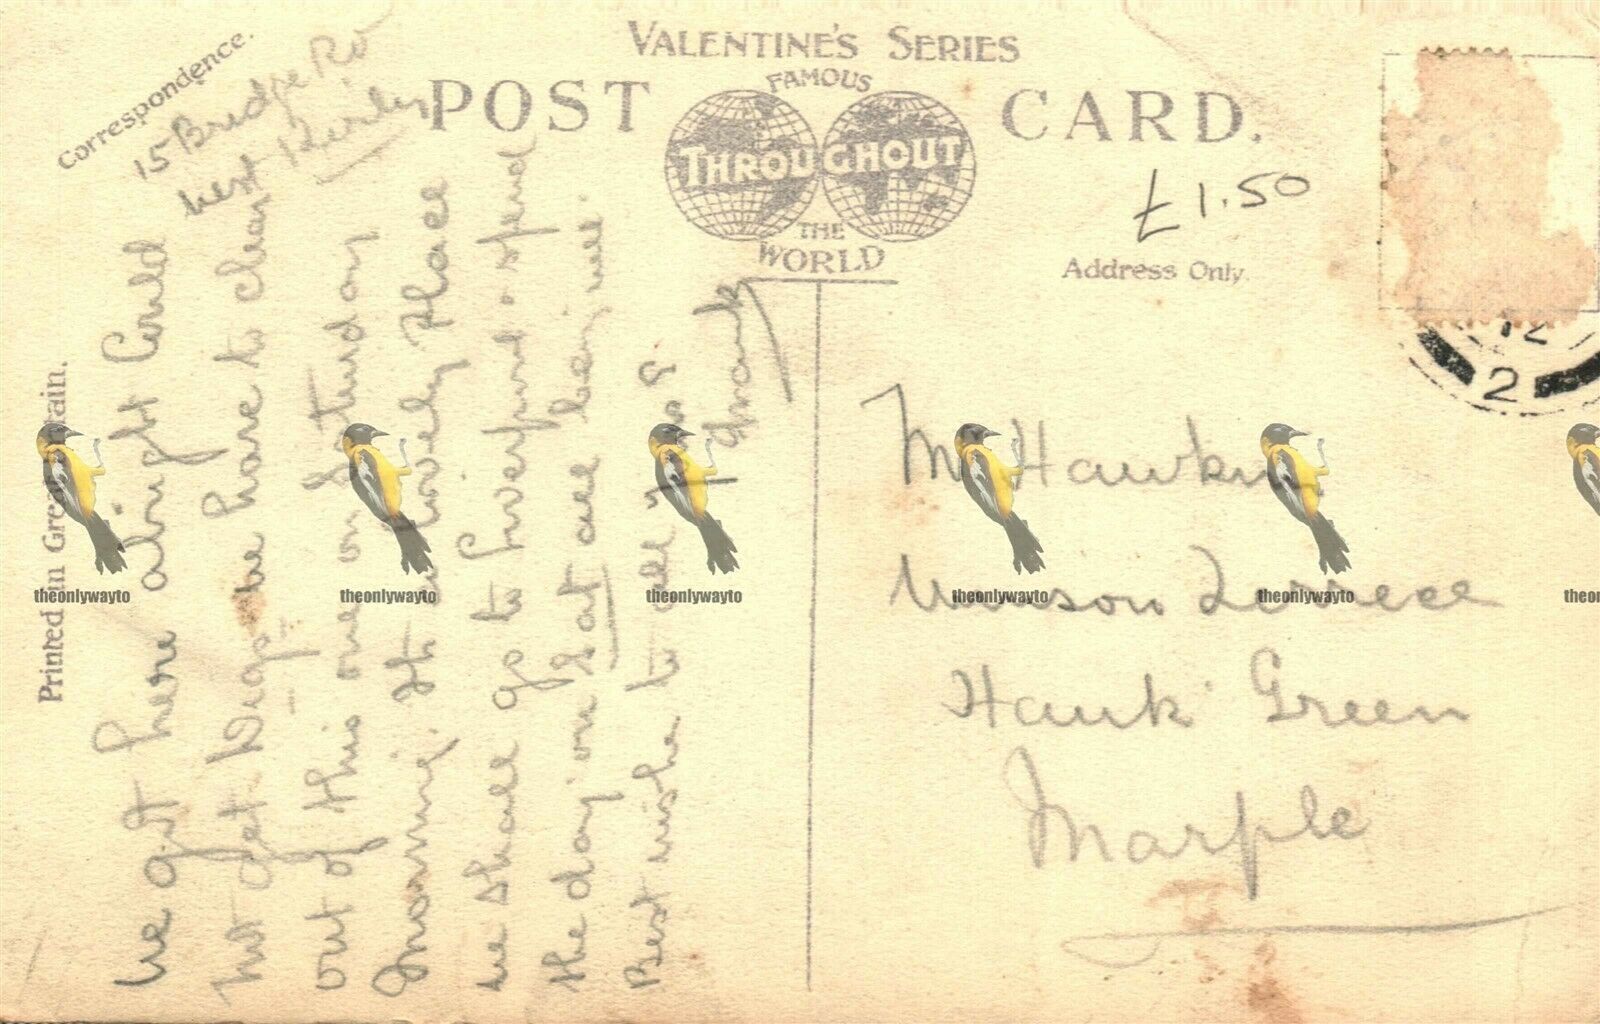 VALENTINE'S SERIES
FAMOUS
POST CARD.
THROUGHOUT
THE
WORLD
Correspondence.
Address Only.
£1.50
12
2
Printed in Great Britain.
15 Bridge Rd
West Kirby
We got here alright Could
not get Digs we have to clear
out of this one on Saturday
Morning. It a lovely place
we shall go to Liverpool & spend
the day on Sat all being well.
Best wishes to all
Frank
Mr Hawkins
Terrace
Hawk Green
Marple
theonlywayto
theonlywayto
theonlywayto
theonlywayto
theonlywayto
theon